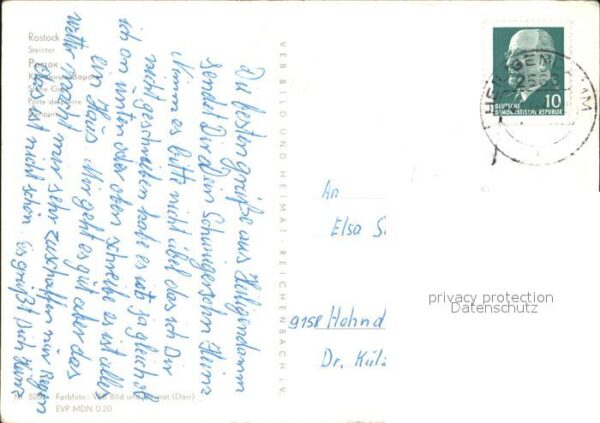 Rostock
Steintor
Росток
Stone Gate
Porte de pierre
Die besten Grüße aus Heiligendamm
sendet Dir Dein Schwiegersohn Heinz
Nimm es bitte nicht übel das ich Dir
nicht geschrieben habe es ist ja gleich ob
ich an unten oder oben schreibe es ist alles
ein Haus. Mir geht es gut aber das
wetter macht mir sehr zuschaffen nur Regen
das ist nicht schön. Es grüßt Dich Heinz
Farbfoto: VEB Bild und Heimat (Darr)
EVP MDN 0.20
VEB BILD UND HEIMAT · REICHENBACH I.V.
HEILIGENDAMM
10
DEUTSCHE
DEMOKRATISCHE REPUBLIK
An
Elsa S
9158 Hohnd
Dr. Külz
privacy protection
Datenschutz